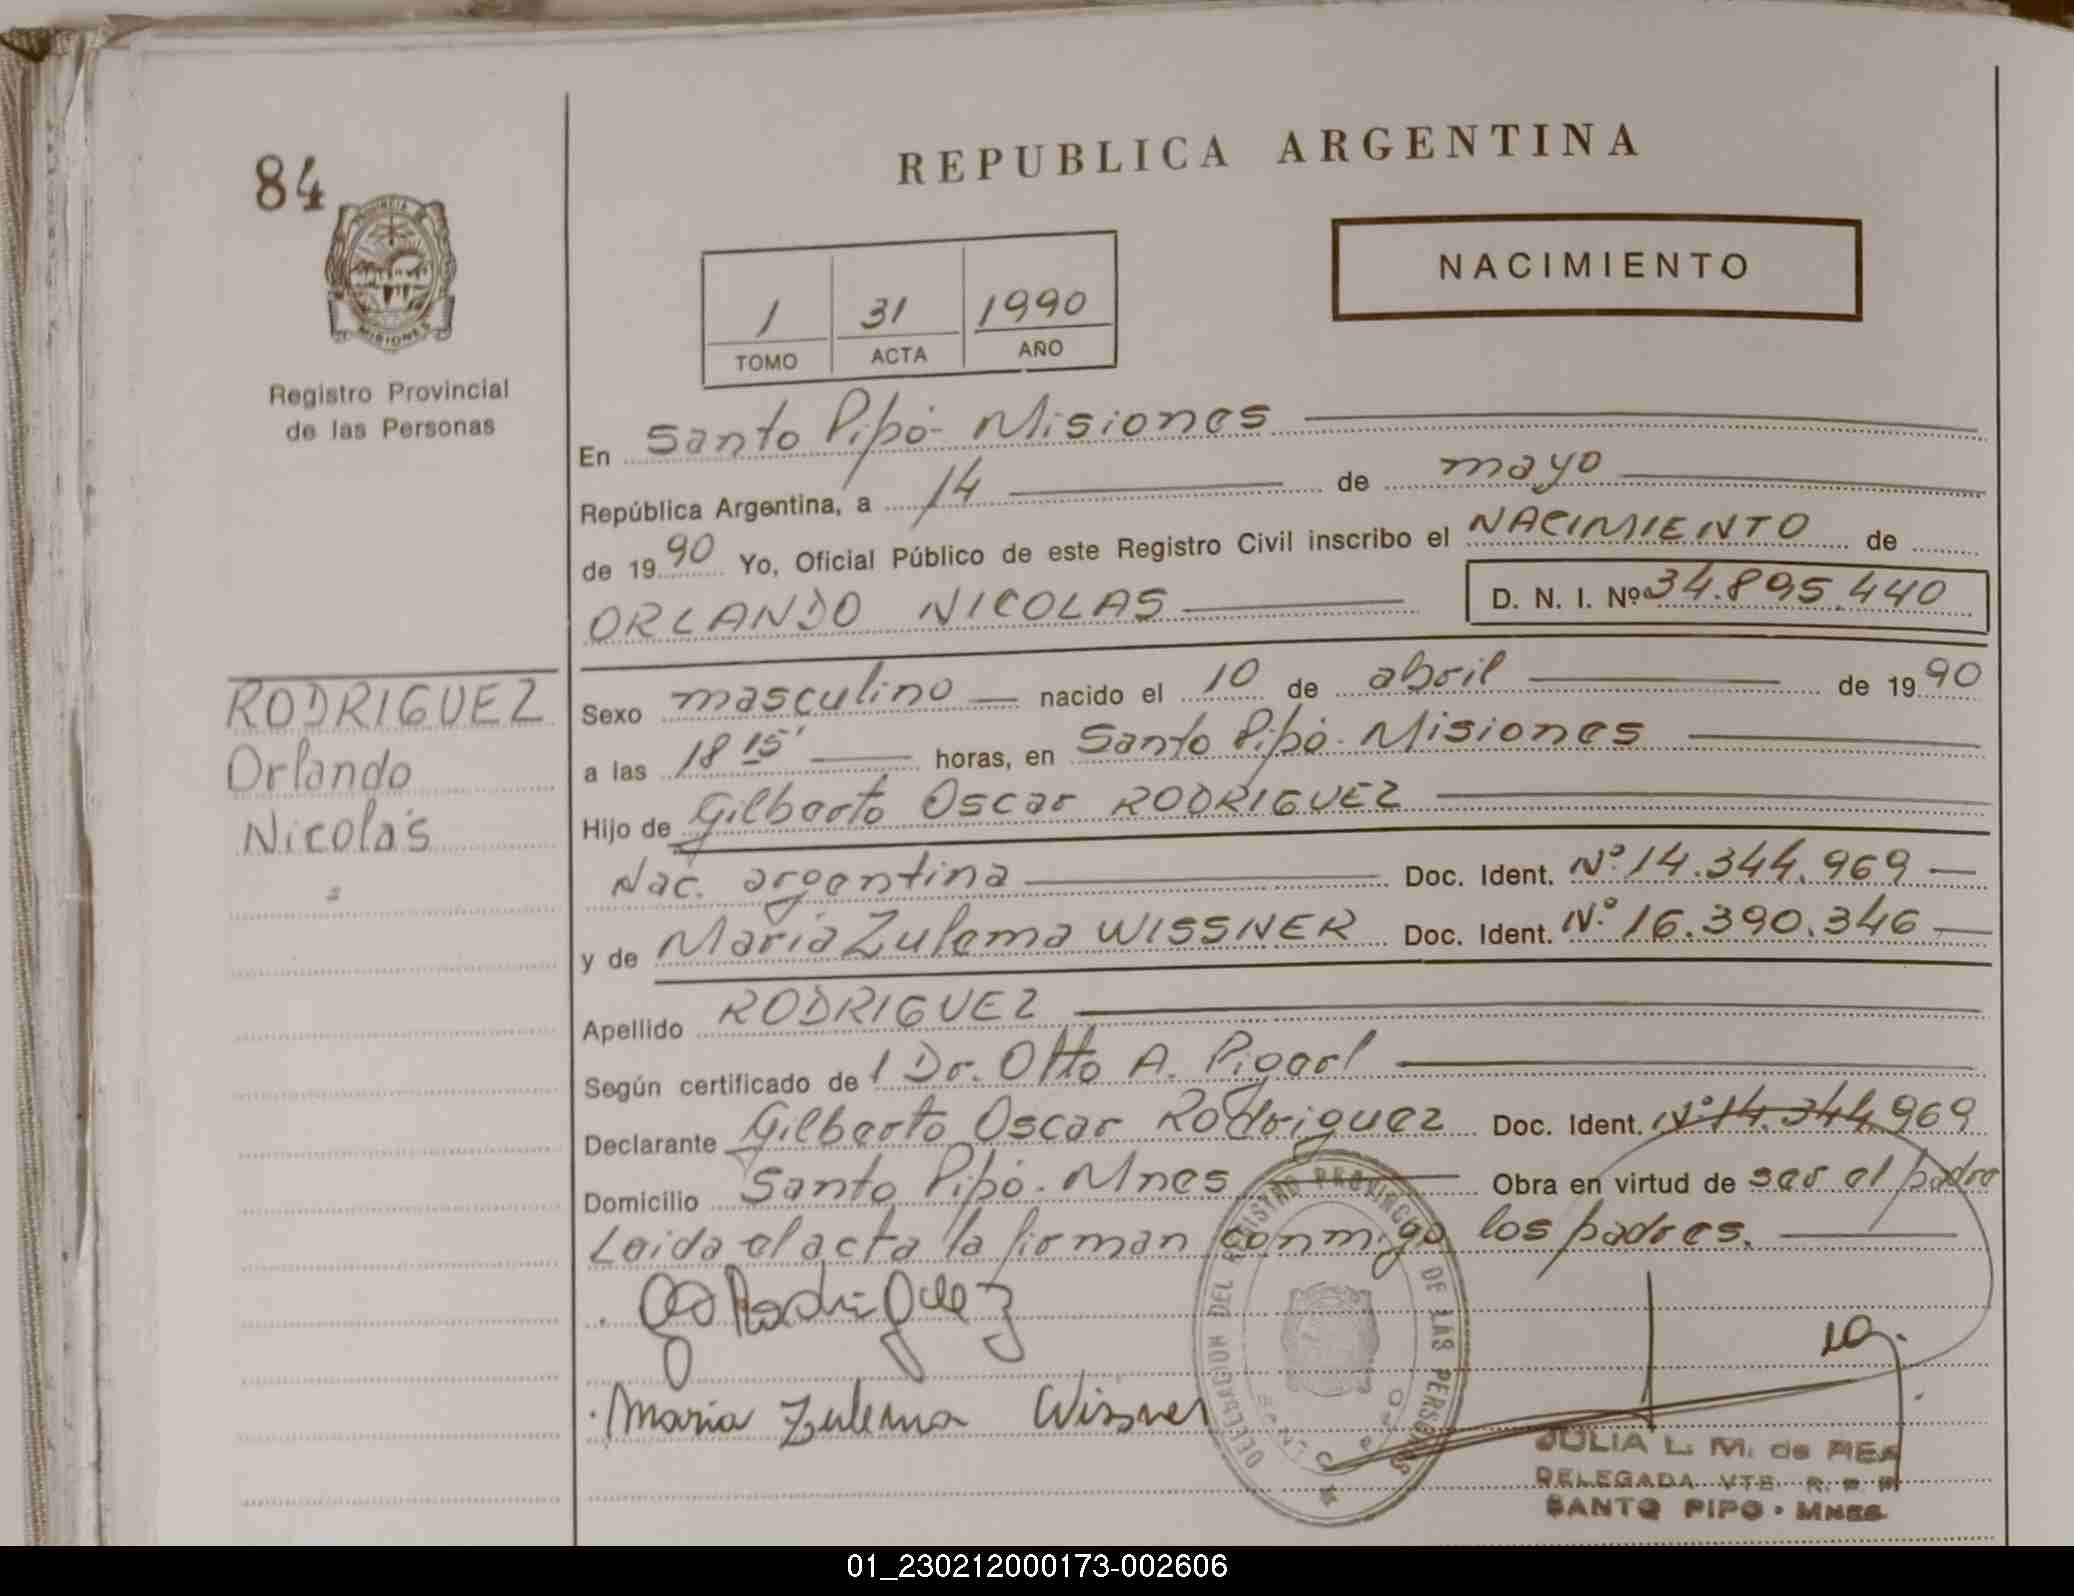 84
PROVINCIA DE
MISIONES
Registro Provincial
de las Personas
REPUBLICA ARGENTINA
NACIMIENTO
1 31 1990
TOMO ACTA AÑO
En Santo Pipó - Misiones
República Argentina, a 14 de mayo
de 19 90 Yo, Oficial Público de este Registro Civil inscribo el NACIMIENTO de
ORLANDO NICOLAS D. N. I. Nº 34.895.440
RODRIGUEZ
Orlando
Nicolás
Sexo masculino nacido el 10 de abril de 19 90
a las 18 15' horas, en Santo Pipó - Misiones
Hijo de Gilberto Oscar RODRIGUEZ
Nac. argentina Doc. Ident. Nº 14.344.969
y de Maria Zulema WISSNER Doc. Ident. Nº 16.390.346
Apellido RODRIGUEZ
Según certificado de l Dr. Otto A.
Declarante Gilberto Oscar Rodriguez Doc. Ident. Nº 14.344.969
Domicilio Santo Pipó - Mnes Obra en virtud de ser el padre
Leida el acta la firman conmigo los padres.
Rodriguez
Maria Zulema Wissner
DELEGACION DEL REGISTRO PROVINCIAL DE LAS PERSONAS
SANTO PIPO
JULIA L. M. de REA
DELEGADA VTE. R. P. P.
SANTO PIPO - MNES
01_230212000173-002606